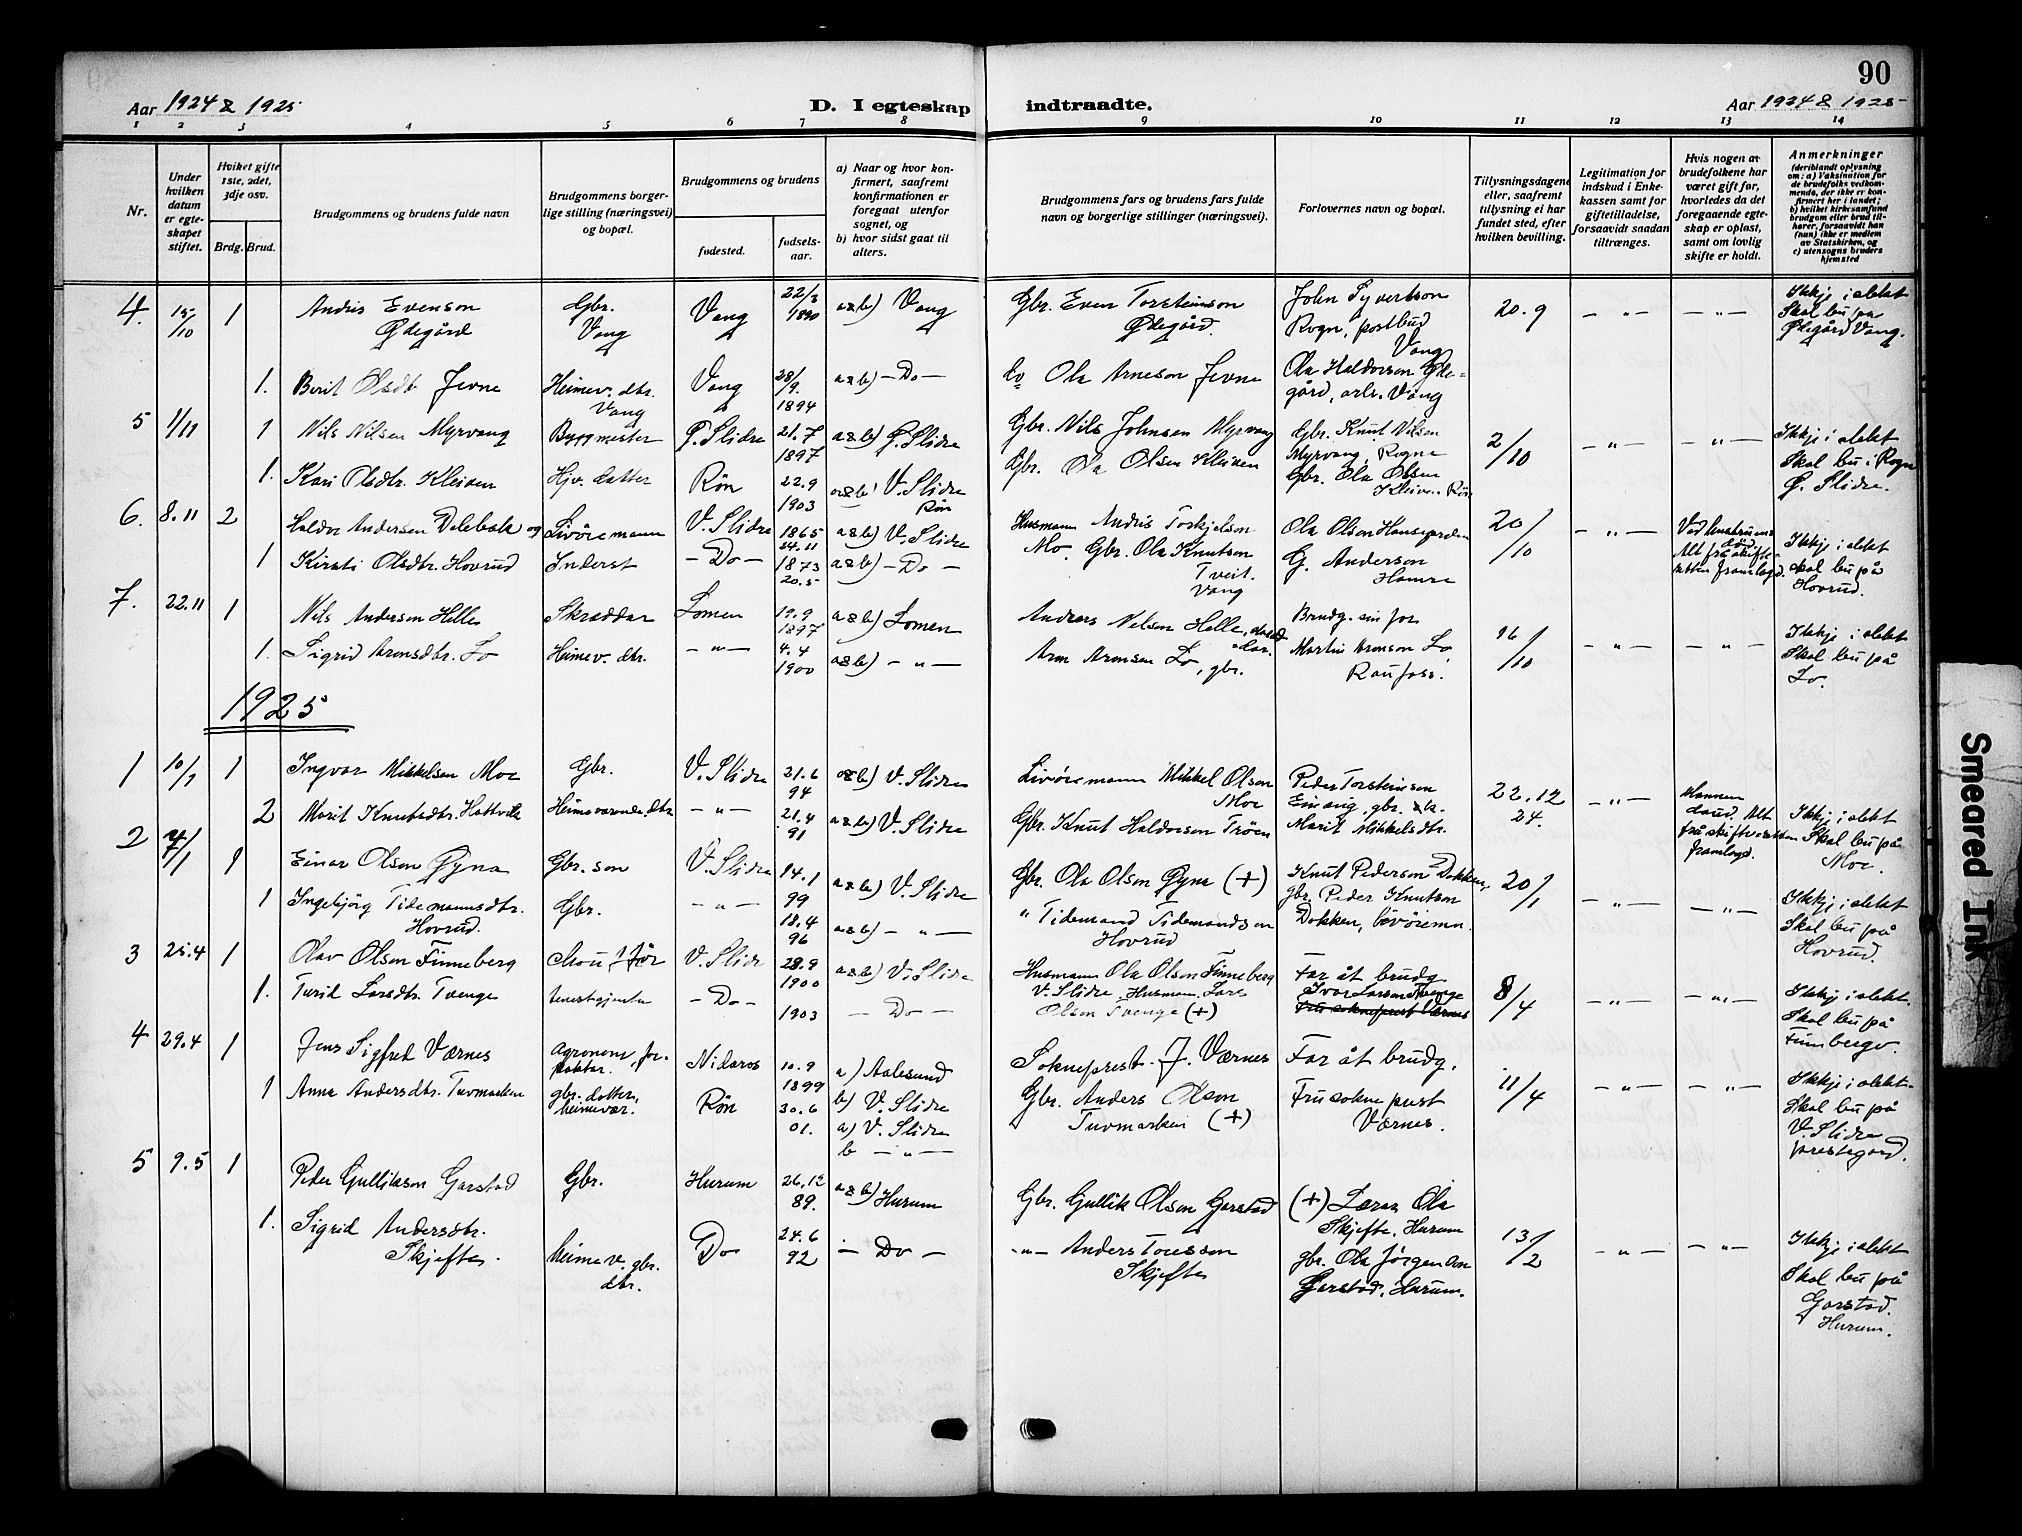 90
Aar 1924 & 1925
D. I egteskap
indtraadte.
Aar 1924 & 1925
1 2 3 4 5 6 7 8 9 10 11 12 13 14
Nr.
Under
hvilken
datum
er egte-
skapet
stiftet.
Hviket gifte
1ste, 2det,
3dje osv.
Brdg. Brud.
Brudgommens og brudens fulde navn
Brudgommens borger-
lige stilling (næringsvei)
og bopæl.
Brudgommens og brudens
fødested.
fødsels-
aar.
a) Naar og hvor kon-
firmert, saafremt
konfirmationen er
foregaat utenfor
sognet, og
b) hvor sidst gaat til
alters.
Brudgommens fars og brudens fars fulde
navn og borgerlige stillinger (næringsvei).
Forlovernes navn og bopæl.
Tillysningsdagene
eller, saafremt
tillysning ei har
fundet sted, efter
hvilken bevilling.
Legitimation for
indskud i Enke-
kassen samt for
giftetilladelse,
forsaavidt saadan
tiltrænges.
Hvis nogen av
brudefolkene har
været gift før,
hvorledes da det
foregaaende egte-
skap er opløst,
samt om lovlig
skifte er holdt.
Anmerkninger
(deriblandt oplysning
om: a) Vaksination for
de brudefolks vedkom-
mende, der ikke er kon-
firmert her i landet;
b) hvilket kirkesamfund
brudgom eller brud til-
hører, forsaavidt han
(hun) ikke er medlem
av Statskirken, og
c) utensogns bruders
hjemsted
4. 15/10 1 Andris Evenson
Ødegård
Gbr.
Vang
Vang
22/3
1890
a&b) Vang
Gbr. Even Torsteinson
Ødegård.
John Syvertson
Rogn, postbud
Vang
20.9
Ikkje i slekt
Skal bu på
Ødegård Vang.
1. Berit Olsdtr Jevne
Heimev. dtr.
Vang
Vang
28/9.
1894
a&b) – Do –
Ola Arneson Jevne
Ola Haldorson Øde-
gård, arb. Vang
5 1/11 1 Nils Nilsen Myrvang
Byggmester
Ø. Slidre
21.7
1897
a&b) Ø. Slidre
Gbr. Nils Johnsen Myrvang
Gbr. Knut Nilsen
Myrvang, Rogne
2/10
Ikkje i slekt
Skal bu i Rogn
Ø. Slidre.
1. Kari Olsdtr. Kleiven
Hjv. datter
Røn
22.9
1903
a&b) V. Slidre
Røn
Gbr. Ola Olsen Kleiven
Gbr. Ola Olsen
Kleive. Røn
6. 8.11 2 Haldor Andersen Dalebak og
Livøremann
V. Slidre
1865
24.11
a&b) V. Slidre
Husmann Andris Toskjelson
Mo.
Ola Olson Hansegarden
20/10
Ved konebruens
død.
Alt frå skifte-
retten framlagd.
Ikkje i slekt
skal bu på
Hovrud.
1 Kirsti Olsdtr. Hovrud
Inderst
– Do –
1873
20.5
a&b) – Do –
Gbr. Ola Knutson
Tveit.
Vang
G. Anderson
Hamre
7. 22.11 1 Nils Anderson Helle
Skræddar
Lomen
19.9
1897
a&b) Lomen
Anders Nilsen Helle,
Brudg. sin far
16/10
Ikkje i slekt
Skal bu på
Lo.
1. Sigrid Aronsdtr. Lo
Heimev. dtr.
– " –
4.4
1900
a&b) – " –
Arne Aronsen Lo, gbr.
Martin Aronson Lo
Raufoss.
1925
1 10/1 1 Ingvar Mikkelsen Moe
Gbr.
V. Slidre
21.6
94
a&b) V. Slidre
Livøremann Mikkel Olson
Moe
Peder Torsteinson
Einang, gbr.
22.12
24.
Mannen
daud. Alt
frå skifteretten
framlagd.
Ikkje i slekt
Skal bu på
Moe.
2 Marit Knutsdtr. Hattvik
Heimeværende dtr
– " –
21.4
91
a&b) V. Slidre
Gbr. Knut Haldorson Trøen
Marit Mikkelsdtr.
2 1 Einar Olson Øyna
Gbr. son
V. Slidre
14.1
99
a&b) V. Slidre
Gbr. Ola Olson Øyna (+)
Knut Pederson Dokken,
gbr. Peder Knutson
Dokken, livøremn.
20/1
Ikkje i slekt
Skal bu på
Hovrud.
1 Ingebjørg Tidemannsdtr.
Hovrud.
Gbr.
– " –
18.4
96
a&b) – " –
" Tidemand Tidemandson
Hovrud
3 25.4 1 Olav Olson Finneberg
V. Slidr
28.9
1900
a&b) V. Slidre
Husmann Ola Olson Finneberg
V. Slidre
Far åt brudg.
8/4
Ikkje i slekt.
Skal bu på
Finnbergo.
1. Turid Larsdtr. Tvenge
tenestgjenta
– Do –
1903
– Do –
Husman Lars
Olson Tvenge (+)
Ivar Larson Tvenge
Fru sokneprest Værnes
4 29.4 1 Jens Sigfred Værnes
agronom, for-
pakter.
Nidaros
10.9
1899
a) Aalesund
b) V. Slidre
Sokneprest J. Værnes
Far åt brudg.
11/4
Ikkje i slekt
Skal bu på
V. Slidre
prestegard.
1 Anna Andersdtr. Tuvmarken
gbr. dotter,
heimevær.
Røn
30.6
01.
a) V. Slidre
b – " –
Gbr. Anders Olson
Tuvmarken (+)
Fru sokneprest
Værnes.
5 9.5 1 Peder Gullikson Garstad
Gbr.
Hurum
26.12
89.
a&b) Hurum
Gbr. Gullik Olson Garstad
(+) Lærar Ola
Skjefte, Hurum
13/2
Ikkje i slekt
Skal bu på
Garstad.
Hurum.
1. Sigrid Andersdtr.
Skjefte.
heimev. gbr.
dtr.
Do
24.6
92
– Do –
– " – Anders Tosteson
Skjefte
gbr. Ola Jørgenson
Garstad, Hurum.
Smeared Ink